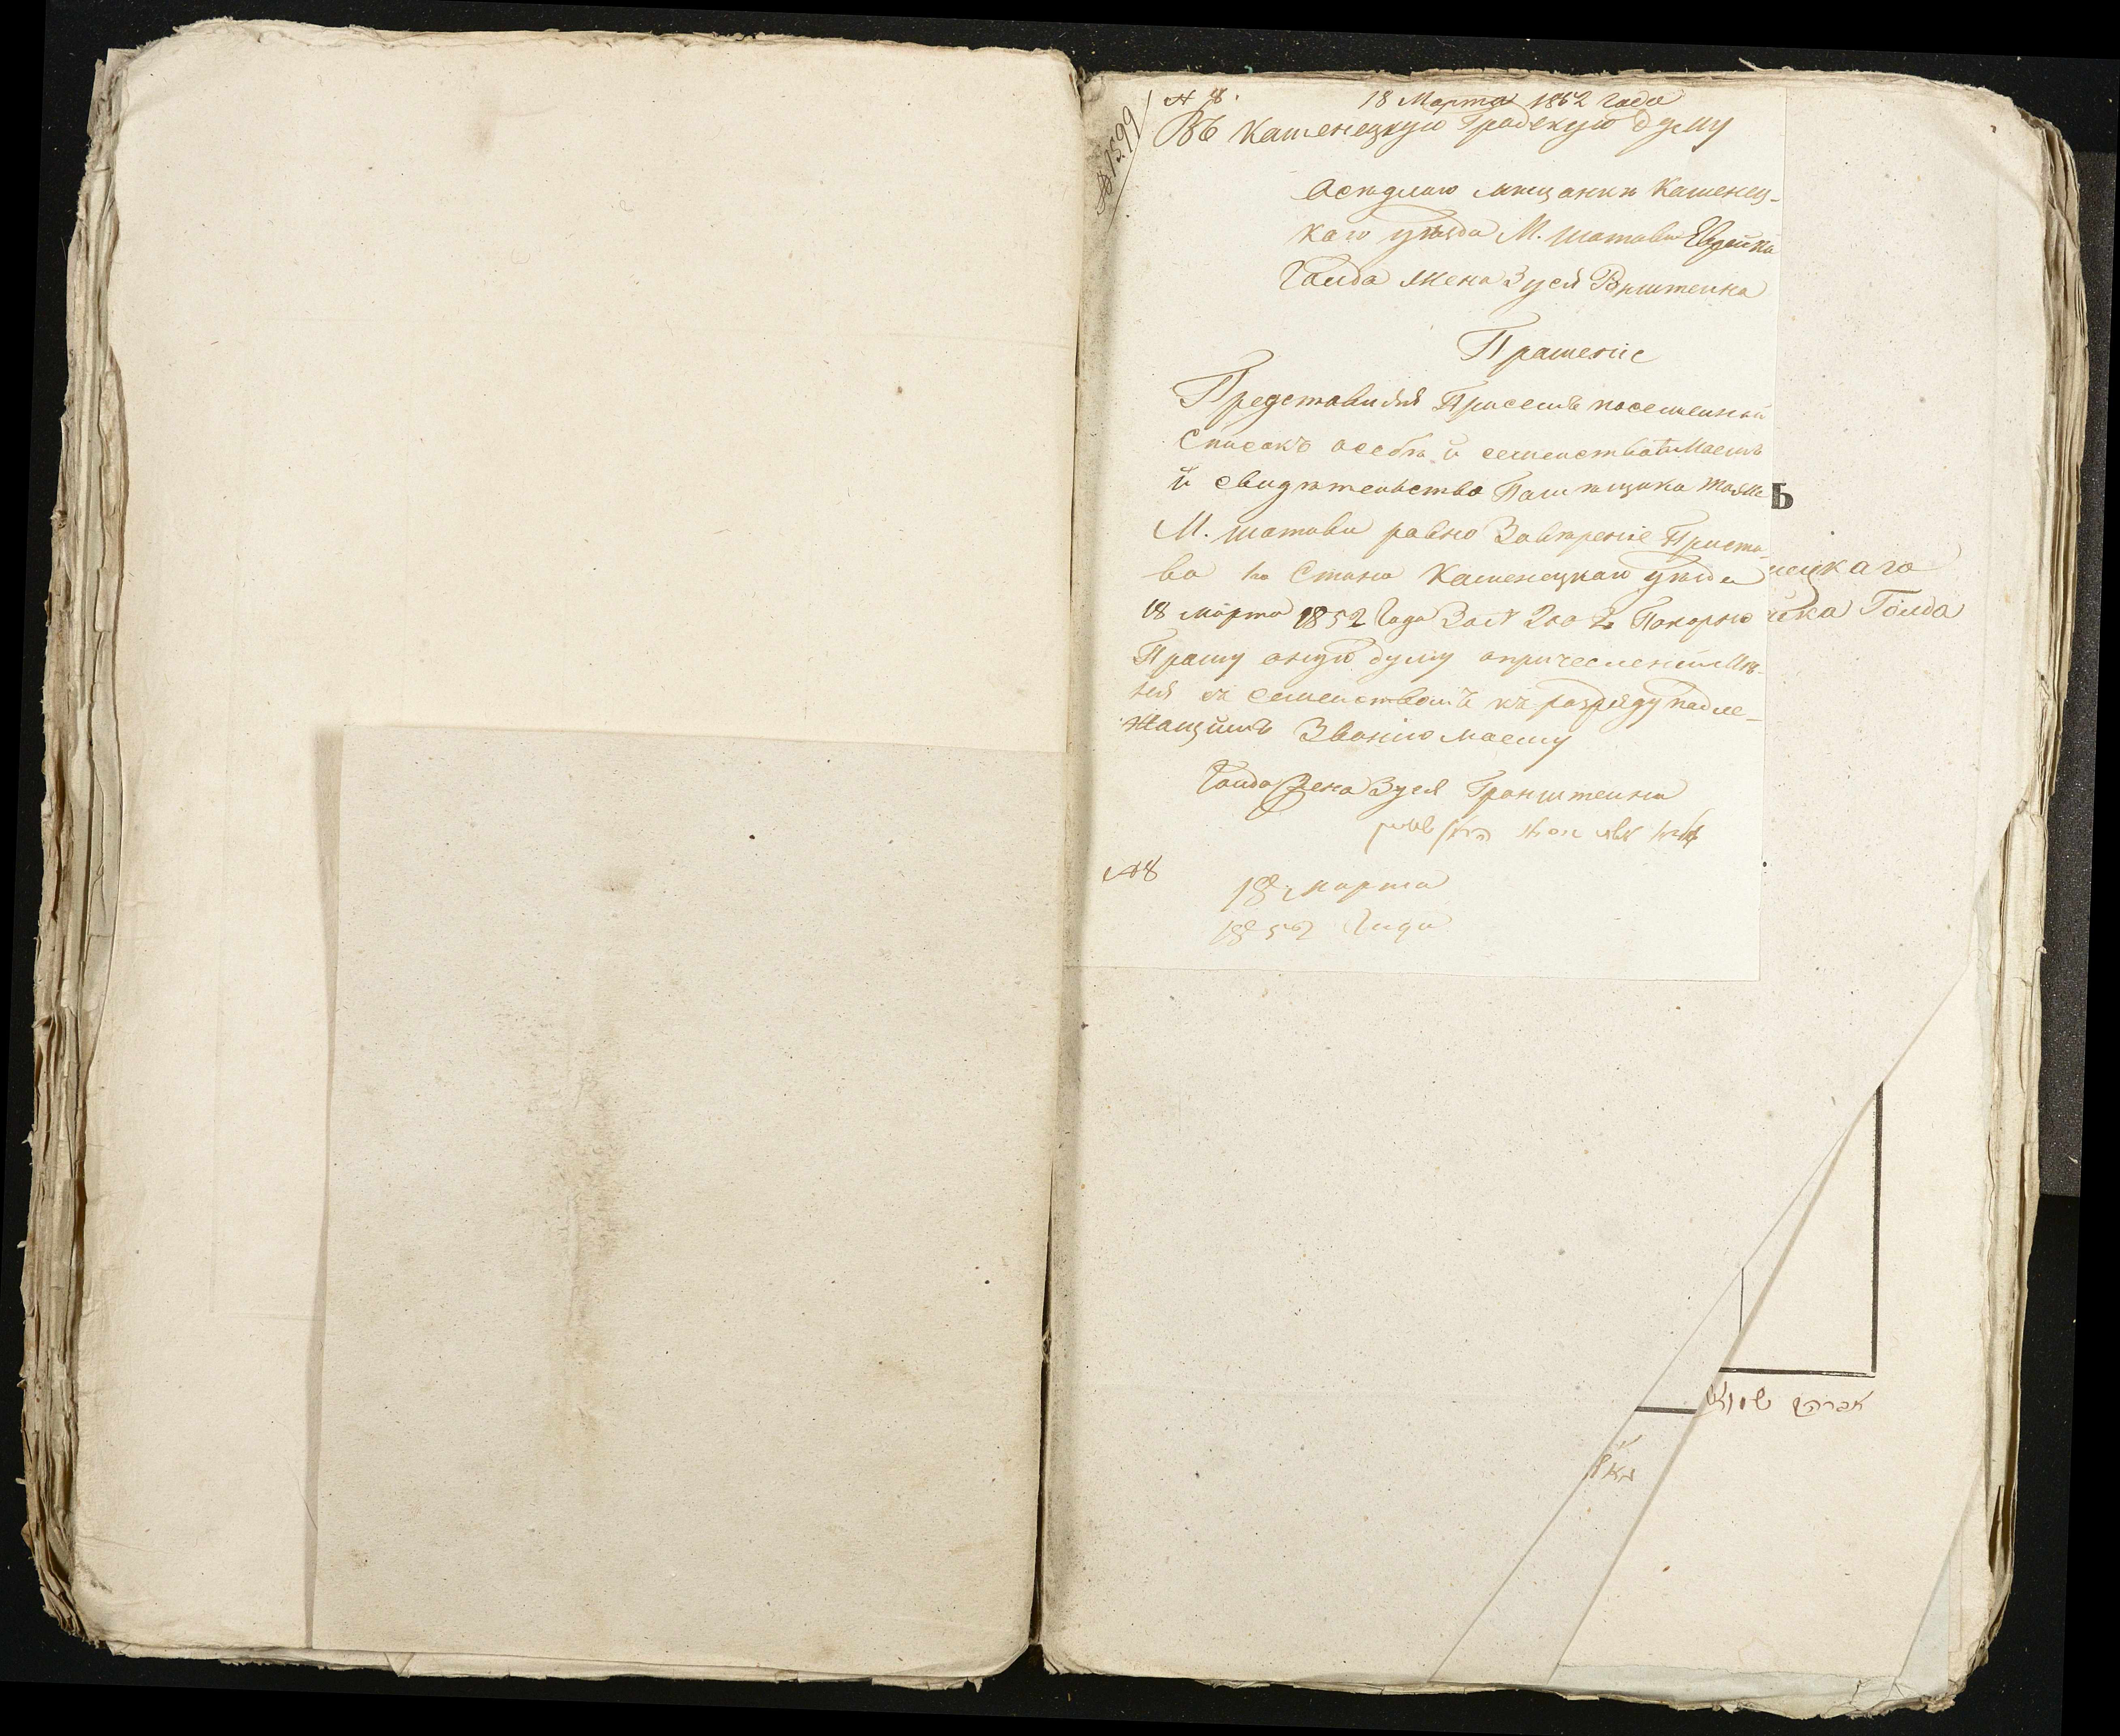 № 8. 18 Марта 1852 года
№ 1599
Въ Каменецкую Градскую Думу
Аседлаю мещанки Каменец-
каго уезда М. Шатави Еврейки
Голда жена Зуся
Прашеніе
Представиляя Присемъ посемейной
Списокъ особи и семейства маемъ
и свидетельство Памещика тояже
М. Шатави равно Заверение Приста-
ва Стана Каменецкаго уезда
18 марта 1852 года За № 200 Покорно
Прашу оную думу апричеслений Ме-
ня съ семействомъ къ разряду надле-
жащимъ Званию маему
Голда Жена Зуся Гранштейна
№ 8
18 марта
1852 Года
Ь
нецкаго
йка Голда
אברהם